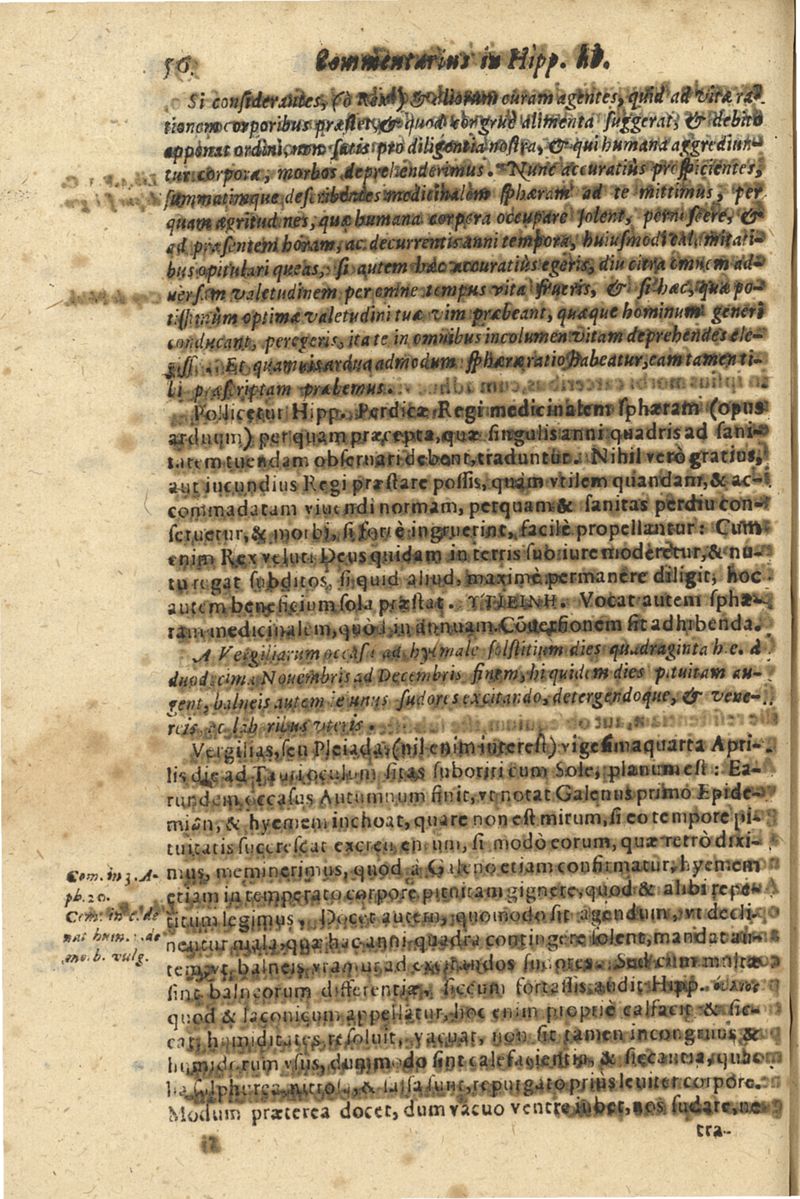 56. Commentarius in Hipp. lib.
Si considerantes, ô Rex, & aliorum curam agentes, quid ad vitæ ra-
tionem corporibus præstet, & quod congruè alimenta suggerat, & debito
apponat ordini, non satis pro diligentia nostra, & qui humana aggrediun-
tur corpora, morbos deprehenderimus. Nunc accuratius prospicientes,
summatimque describentes medicinalem sphæram ad te mittimus, per
quam ægritudines, quæ humana corpora occupare solent, pernoscere, &
ad præsentem horam, ac decurrentis anni tempora, huiusmodi calamitati-
bus opitulari queas, si autem hæc accuratiùs egeris, diu citra omnem ad-
uersam valetudinem per omne tempus vita frueris, & si hæc, quæ po-
tissimùm optimæ valetudini tuæ vim præbeant, quæque hominum generi
conducant, peregeris, ita te in omnibus incolumen vitam deprehendes ele-
gisse. Et quamuis ardua admodum sphæræ ratio habeatur, eam tamen ti-
bi præscriptam præbemus.
Pollicetur Hipp. Perdicæ Regi medicinalem sphæram (opus
arduum) per quam præcepta, quæ singulis anni quadris ad sani-
tatem tuendam obseruari debent, traduntur. Nihil verò gratius,
aut iucundius Regi præstare possis, quam vtilem quandam, & ac-
commodatam viuendi normam, perquam & sanitas perdiu con-
seruetur, & morbi, si fortè ingruerint, facilè propellantur: Cum
enim Rex veluti Deus quidam in terris sub iure moderetur, & nu-
tu regat subditos, si quid aliud, maximè permanere diligit, hoc
autem beneficium sola præstat. ΥΓΙΕΙΝΗ. Vocat autem sphæ-
ram medicinalem, quòd in annuam Cõuersionem sit adhibenda.
A Vergiliarum occasu ad hyemale solstitium dies quadraginta h. e. à
duodecima Nouembris ad Decembris finem, hi quidem dies pituitam au-
gent, balneis autem ieiunus sudores excitando, detergendoque, & vene-
reis ac laboribus vteris.
Vergilias, seu Pleiadas (nil enim interest) vigesima quarta Apri-
lis die ad Tauri oculum sitas suboriri cum Sole, planum est: Ea-
rundem occasus Autumnum finit, vt notat Galenus primo Epide-
miôn, & hyemem inchoat, quare non est mirum, si eo tempore pi-
tuitatis succrescat excrementum, si modò eorum, quæ retrò dixi-
mus, meminerimus, quod à Galeno etiam confirmatur, hyemem
etiam in temperato corpore pituitam gignere, quod & alibi repe-
titum legimus. Docet autem, quomodo sit agendum, vt decli-
nentur mala, quæ hac anni quadra contingere solent, mandat au-
tem, vt balneis vtamur ad excitandos sudores. Sed cùm multæ
sint balneorum differentiæ, siccum fortassis audit Hipp.
quod & laconicum appellatur, hoc enim propriè calfacit & sic-
cat, humiditates resoluit, vacuat, non sit tamen incongruus &
humidorum vsus, dummodo sint calefacientia, & siccantia, qualia
sulphurea, nitrosa, & salsa sunt, repurgato prius leuiter corpore.
Modum præterea docet, dum vacuo ventre iubet, nos sudare, ne
tra-
Com. in 3. A-
ph. 20.
Com. in l. de
nat. hum. de